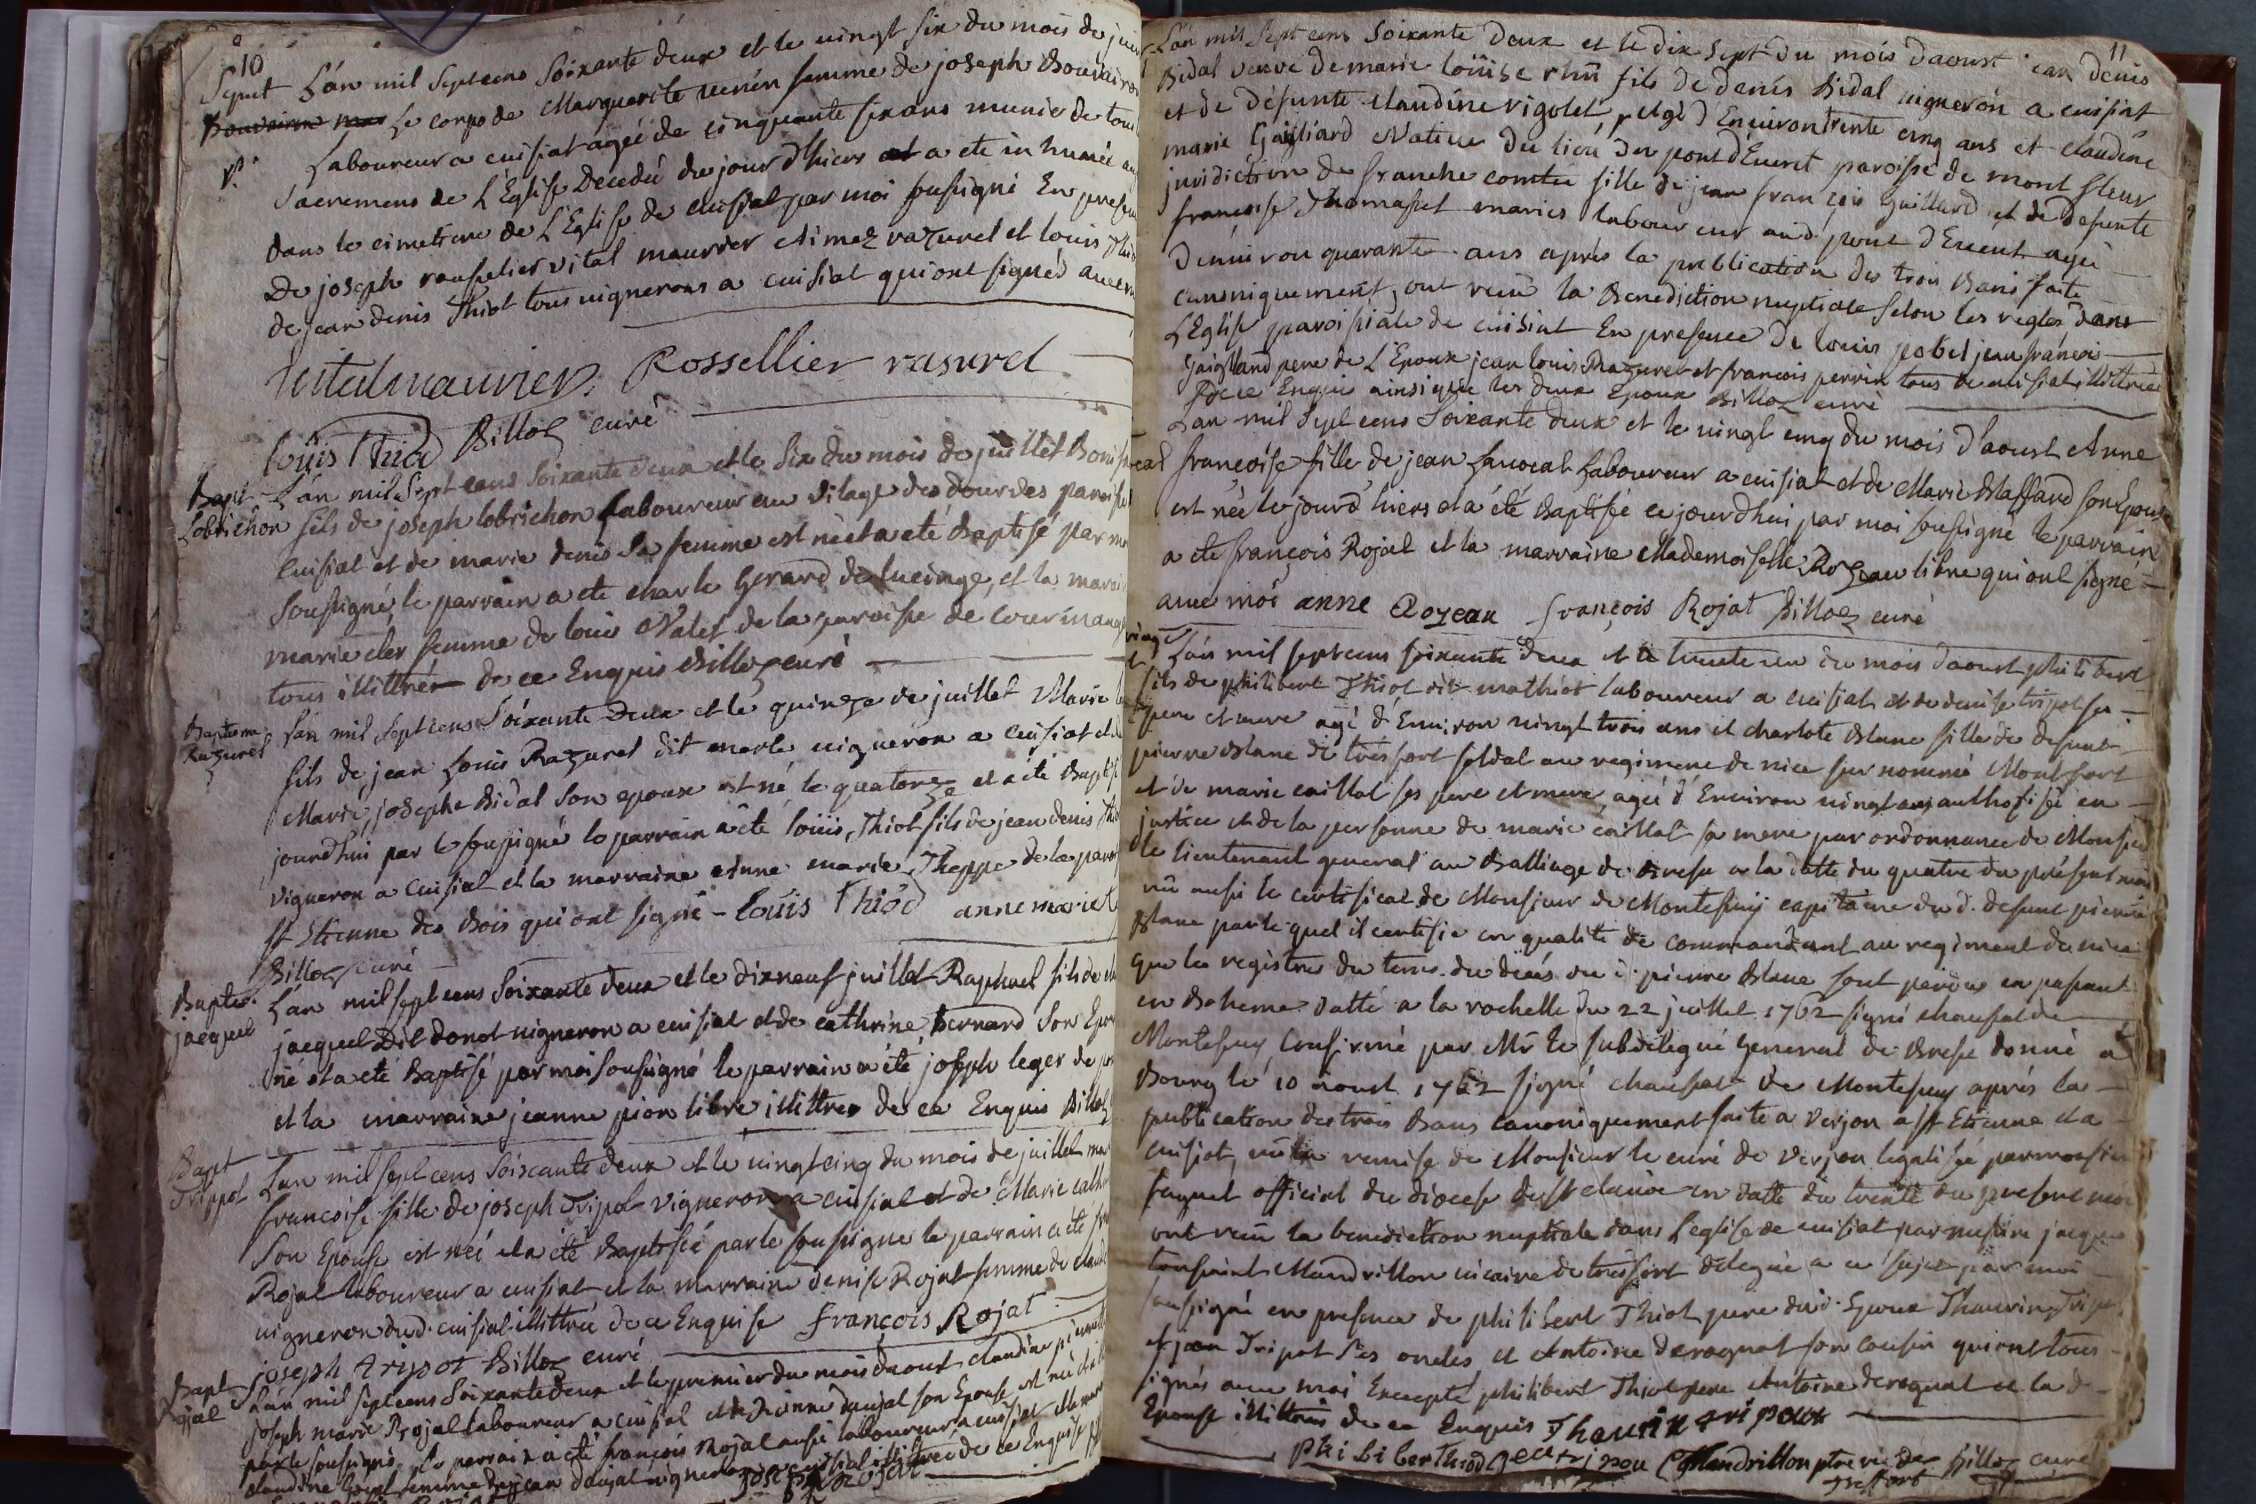 10
Sepult L'an mil Sept cens Soixante deux et le vingt six du mois de juin
le corps de Marguerite venén femme de joseph Bouvairon
Laboureur a cuisiat agée de cinquante six ans munie de tous
sacremens de L'Eglise Decedeé du jour d'hiers a ete inhumée
dans le cimetiere de L'Eglise de cuisiat par moi sousigné En presen
De joseph rousselier vital maurier Aimez razurel et louis Thio
de jean denis Thiot tous vignerons a cuisiat qui ont signés avec m
vital maurier Rossellier rasurel
louis Thiod Billoz curé
Bapt L'an mil Sept cens Soixante deux et le Six du mois de juillet
Lobrichon fils de joseph lobrichon Laboureur au vilage des dourdes paroisse
cuisiat et de marie denis Sa femme est né et a eté Baptisé par m
sousigné, le parrain a ete charle Gerard de lucinge, et la marai
marie cler femme de louis Valet de la paroisse de courmang
tous illittrés de ce Enquis Billoz curé
Bapteme L'an mil Sept cens Soixante Deux et le quinze de juillet Marie
Razurel fils de jean Louis Razurel dit merle vigneron a Cuisiat et
Marie josephe Bidal Son epouse est né le quatorze et a été Baptis
jourd'hui par le sousigné le parrain a été loüis Thiot fils de jean denis Thio
vigneron a Cuisiat et la marraine Anne marie Theppe de la paroi
st Etienne des Bois qui ont signé - loüis Thiod anne marie t
Billoz curé
Baptes. L'an mil sept cens Soixante deux et le dixneuf juillet Raphael fils de
jacquel jacquel Dit donot vigneron a cuisiat et de cathrine bernard Son Epou
né et a eté Baptisé par moi sousigné le parrain a été joseph leger de
et la marraine jeanne pion libre illittres de ce Enquis Billoz
Bapt L'an mil sept cens Soixcante deux et le vingt cinq du mois de juillet mar
Trippot francoise fille de joseph Tripot vigneron a cuisiat et de Marie cath
Son Epouse est neé et a été Baptisée par le sousigne le parrain a été fran
Rojat laboureur a cuisiat et la marraine denise Rojat femme de claude
vigneron dud. cuisiat illittré de ce Enquise françois Rojat
joseph tripot Billoz curé
Bapt L'an mil sept cens Soixante deux et le premier du mois d'aout claudine pierrette
Rojat joseph marie Rojat laboureur a cuisiat et de Son Epouse est née et a
par le sousigné. Le parrain a été françois Rojat aussi laboureur a cuisiat
claudine femme de jean daujat vigneron a cuisiat illittrée de ce Enquise
joseph rojat
11
L'an mil Sept cens Soixante Deux et le dix Sept du mois d'aoust jean denis
Bidal veuve de marie loüise fils de denis Bidal vigneron a cuisiat
et de Défunte claudine vigolet, Agé d'Environ trente cinq ans et claudine
marie Gailliard Native du lieu du pont d'Evenet paroisse de mont fleur
juridiction de franche comtée fille de jean françois Gaillard et de Defunte
francoise Thomasset mariés laboureur aud. pont d'Evenet agée
d'environ quarante ans aprés la publication des trois Bans faite
canoniquement, ont reçu la Benediction nuptiale Selon les regles dans
L'Eglise paroissiale de cuisiat En presence De louis pobel jean françois
Gaigliard pere de L'Epoux jean louis Razurel et francois perrin tous de cuisiat illittrées
de ce Enquis ainsi que les deux Epoux Billoz curé
L'an mil Sept cens Soixante deux et le vingt cinq du mois d'aoust Anne
françoise fille de jean Lavocat Laboureur a cuisiat et de Marie Maffard son Epouse
est née le jourd'hiers et a été Baptisée ce jourd'hui par moi sousigné le parrain
a ete françois Rojat et la marraine Mademoiselle Rozeau libre qui ont signé
avec moi anne Rozeau françois Rojat Billoz curé
L'an mil sept cens soixante deux et le trente un du mois d'aoust philibert
fils de philibert Thiot dit mathiot laboureur a cuisiat et de denise tripot ses
pere et mere agé d'Environ vingt trois ans et charlote Blanc fille de defunt
pierre Blanc de tresfort soldat au regiment de nice surnommé Montfort
et de marie caillat ses pere et mere, ageé d'Environ vingt ans authorisée en
justice et de la personne de marie caillat sa mere par ordonnance de Monsieur
le lieutenant general au Bailliage de Bresse a la datte du quatre du présent mois
vu aussi le certificat de Monsieur de Montespuy capitaine du d. defunt pierre
Blanc par le quel il certifie en qualité de commandant au regiment de nice
que les registres du tems du décés du d. pierre Blanc sont perdus en passant
en Boheme datté a la rochelle du 22 juillet 1762 signé chaussat de
Montespuy confirmé par Mr le subdelegué general de Bresse donné a
Bourg le 10 aoust 1762 signé chaussat de Montespuy aprés la
publication des trois Bans canoniquement faite a Verjon a st Etienne et a
cuisiat, vu la remise de Monsieur le curé de Verjon legalisée par monsieur
faguet official du diocese de st claude en datte du trente du present moi
ont reçu la benediction nuptiale dans L'eglise de cuisiat par messire jacque
toussaint Mandrillon vicaire de tresfort delegué a ce sujet par moi
sousigné en presence de philibert Thiot pere dud. Epoux Thaurin Tripot
et jean Tripot Ses oncles et Antoine deroquat son cousin qui ont tous
signés avec moi Excepté philibert Thiot pere Antoine deroquat et la d.
Epouse illittrées de ce Enquis Thaurin tripout
philiber thiod jean tripou Mandrillon ptre vic. de treffort Billoz curé